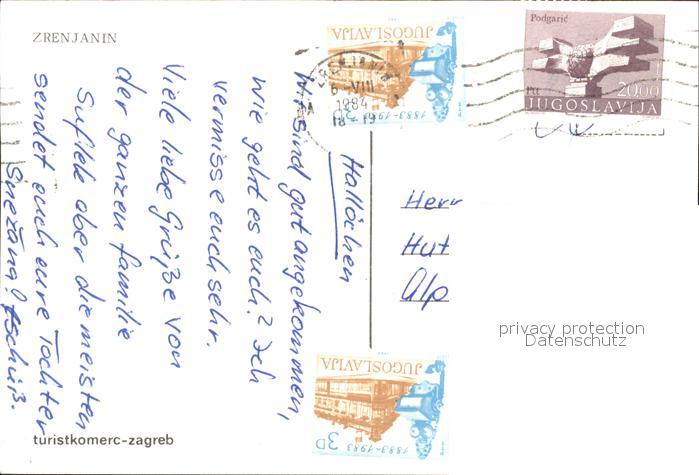 ZRENJANIN
Hallöchen
Wir sind gut angekommen,
wie geht es euch? Ich
vermisse euch sehr.
Viele liebe Grüße von
der ganzen familie
aber die meisten
sendet euch eure Tochter
Snežana! Tschüß.
turistkomerc-zagreb
JUGOSLAVIJA
1883-1983
6 VIII
1984
18-19
Podgarić
20.00
JUGOSLAVIJA
Herr
Hut
Alp
privacy protection
Datenschutz
JUGOSLAVIJA
3 D
1883-1983